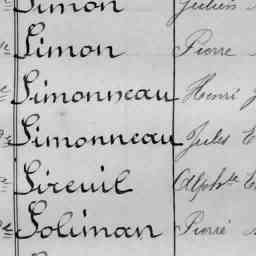 Simon Julien
Simon Pierre
Simonneau Henri J
Simonneau Jules E
Sireuil Alph.te E
Soliman Pierre